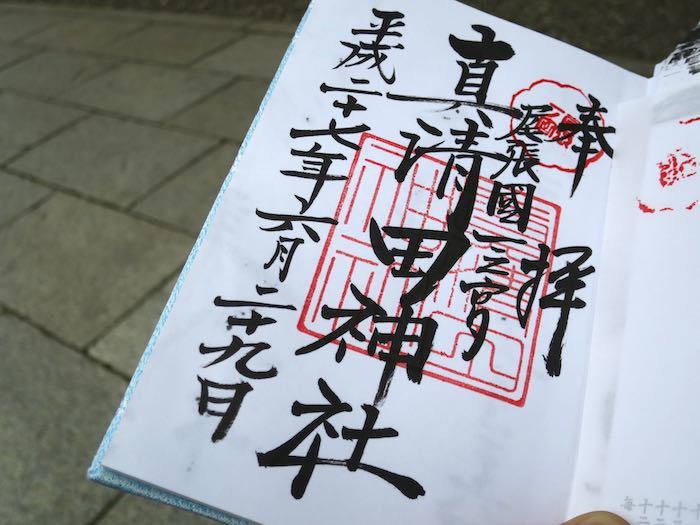 奉拝
尾張國一宮
真清田神社
平成二十七年六月二十九日